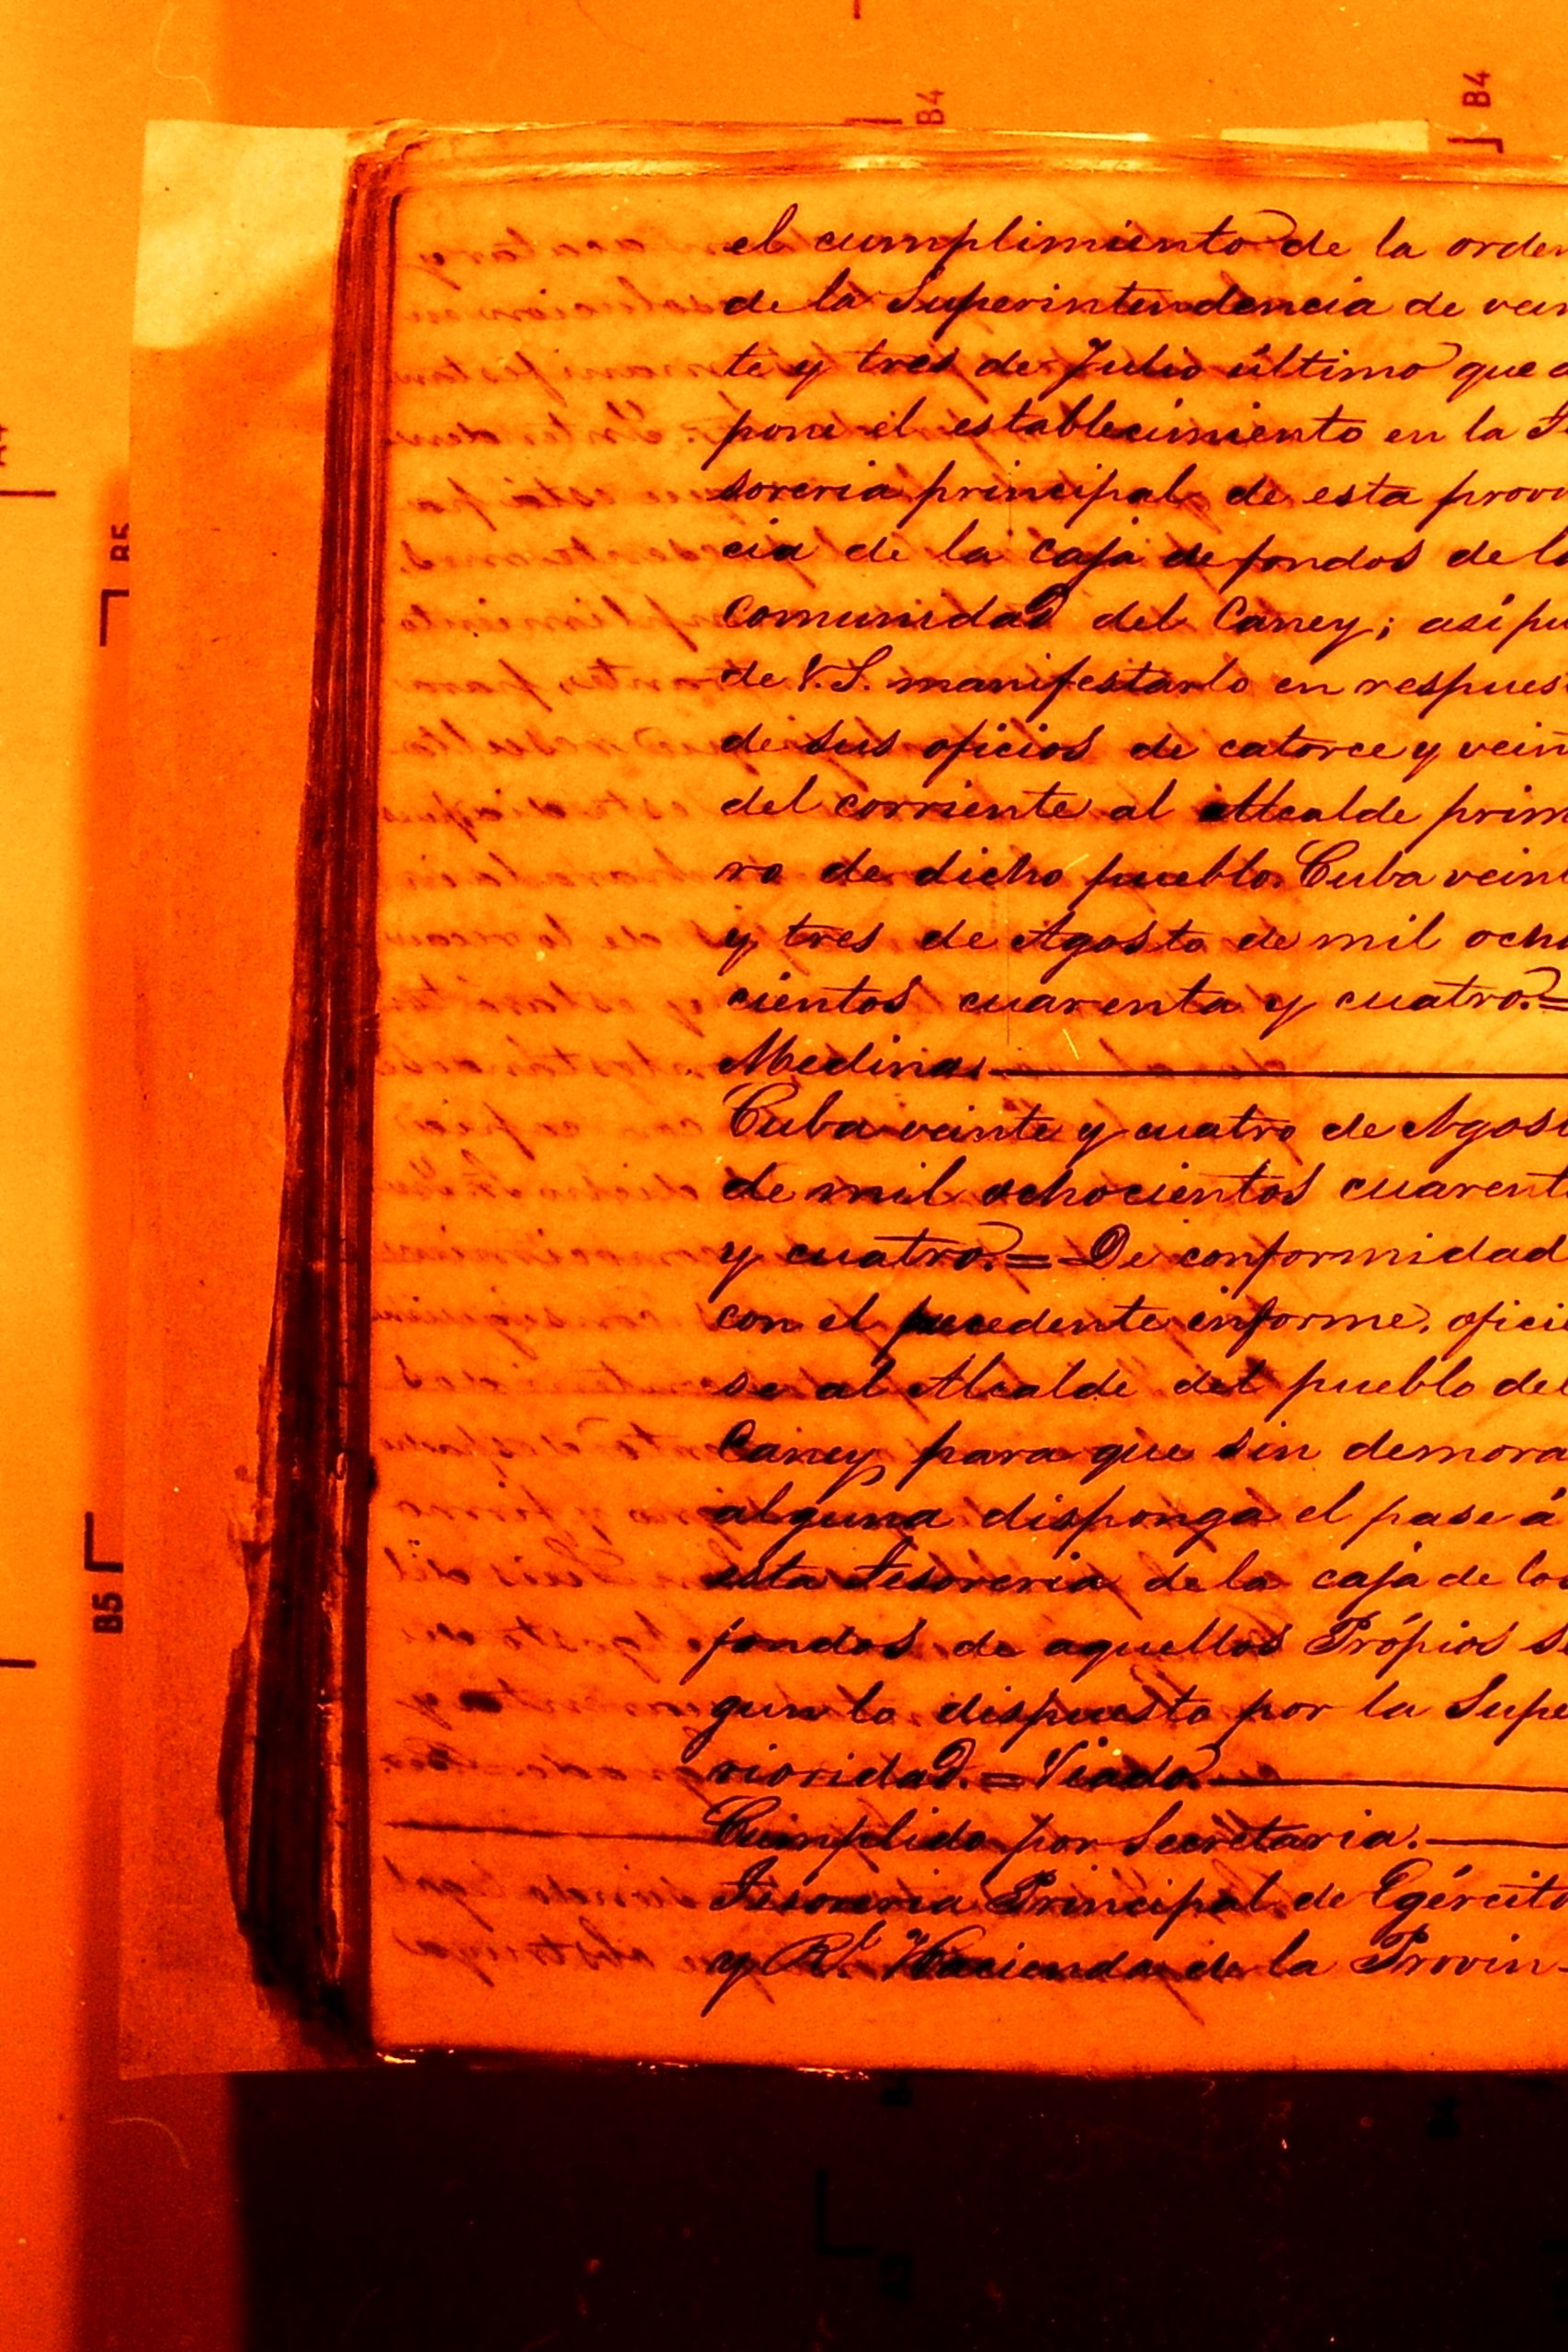 B4
B4
el cumplimiento de la orden
de la Superintendencia de vein
te y tres de Julio último que
pone el establecimiento en la
soreria principal de esta provin
cia de la caja de fondos de la
comunidad del Caney; así pu
de V.S. manifestarlo en respues
de sus oficios de catorce y vein
del corriente al Alcalde prim
ro de dicho pueblo. Cuba vein
y tres de Agosto de mil ocho
cientos cuarenta y cuatro.=
Medina.
Cuba veinte y cuatro de Agos
de mil ochocientos cuarent
y cuatro.= De conformidad
con el precedente informe, oficie
se al Alcalde del pueblo del
Caney para que sin demora
alguna disponga el pase á
esta Tesoreria de la caja de los
fondos de aquellos Própios se
gun lo dispuesto por la Supe
rioridad.= Viado.
Cumplido por Secretaria.
Tesoreria Principal de Egército
y Rl. Hacienda de la Provin-
B5
B5